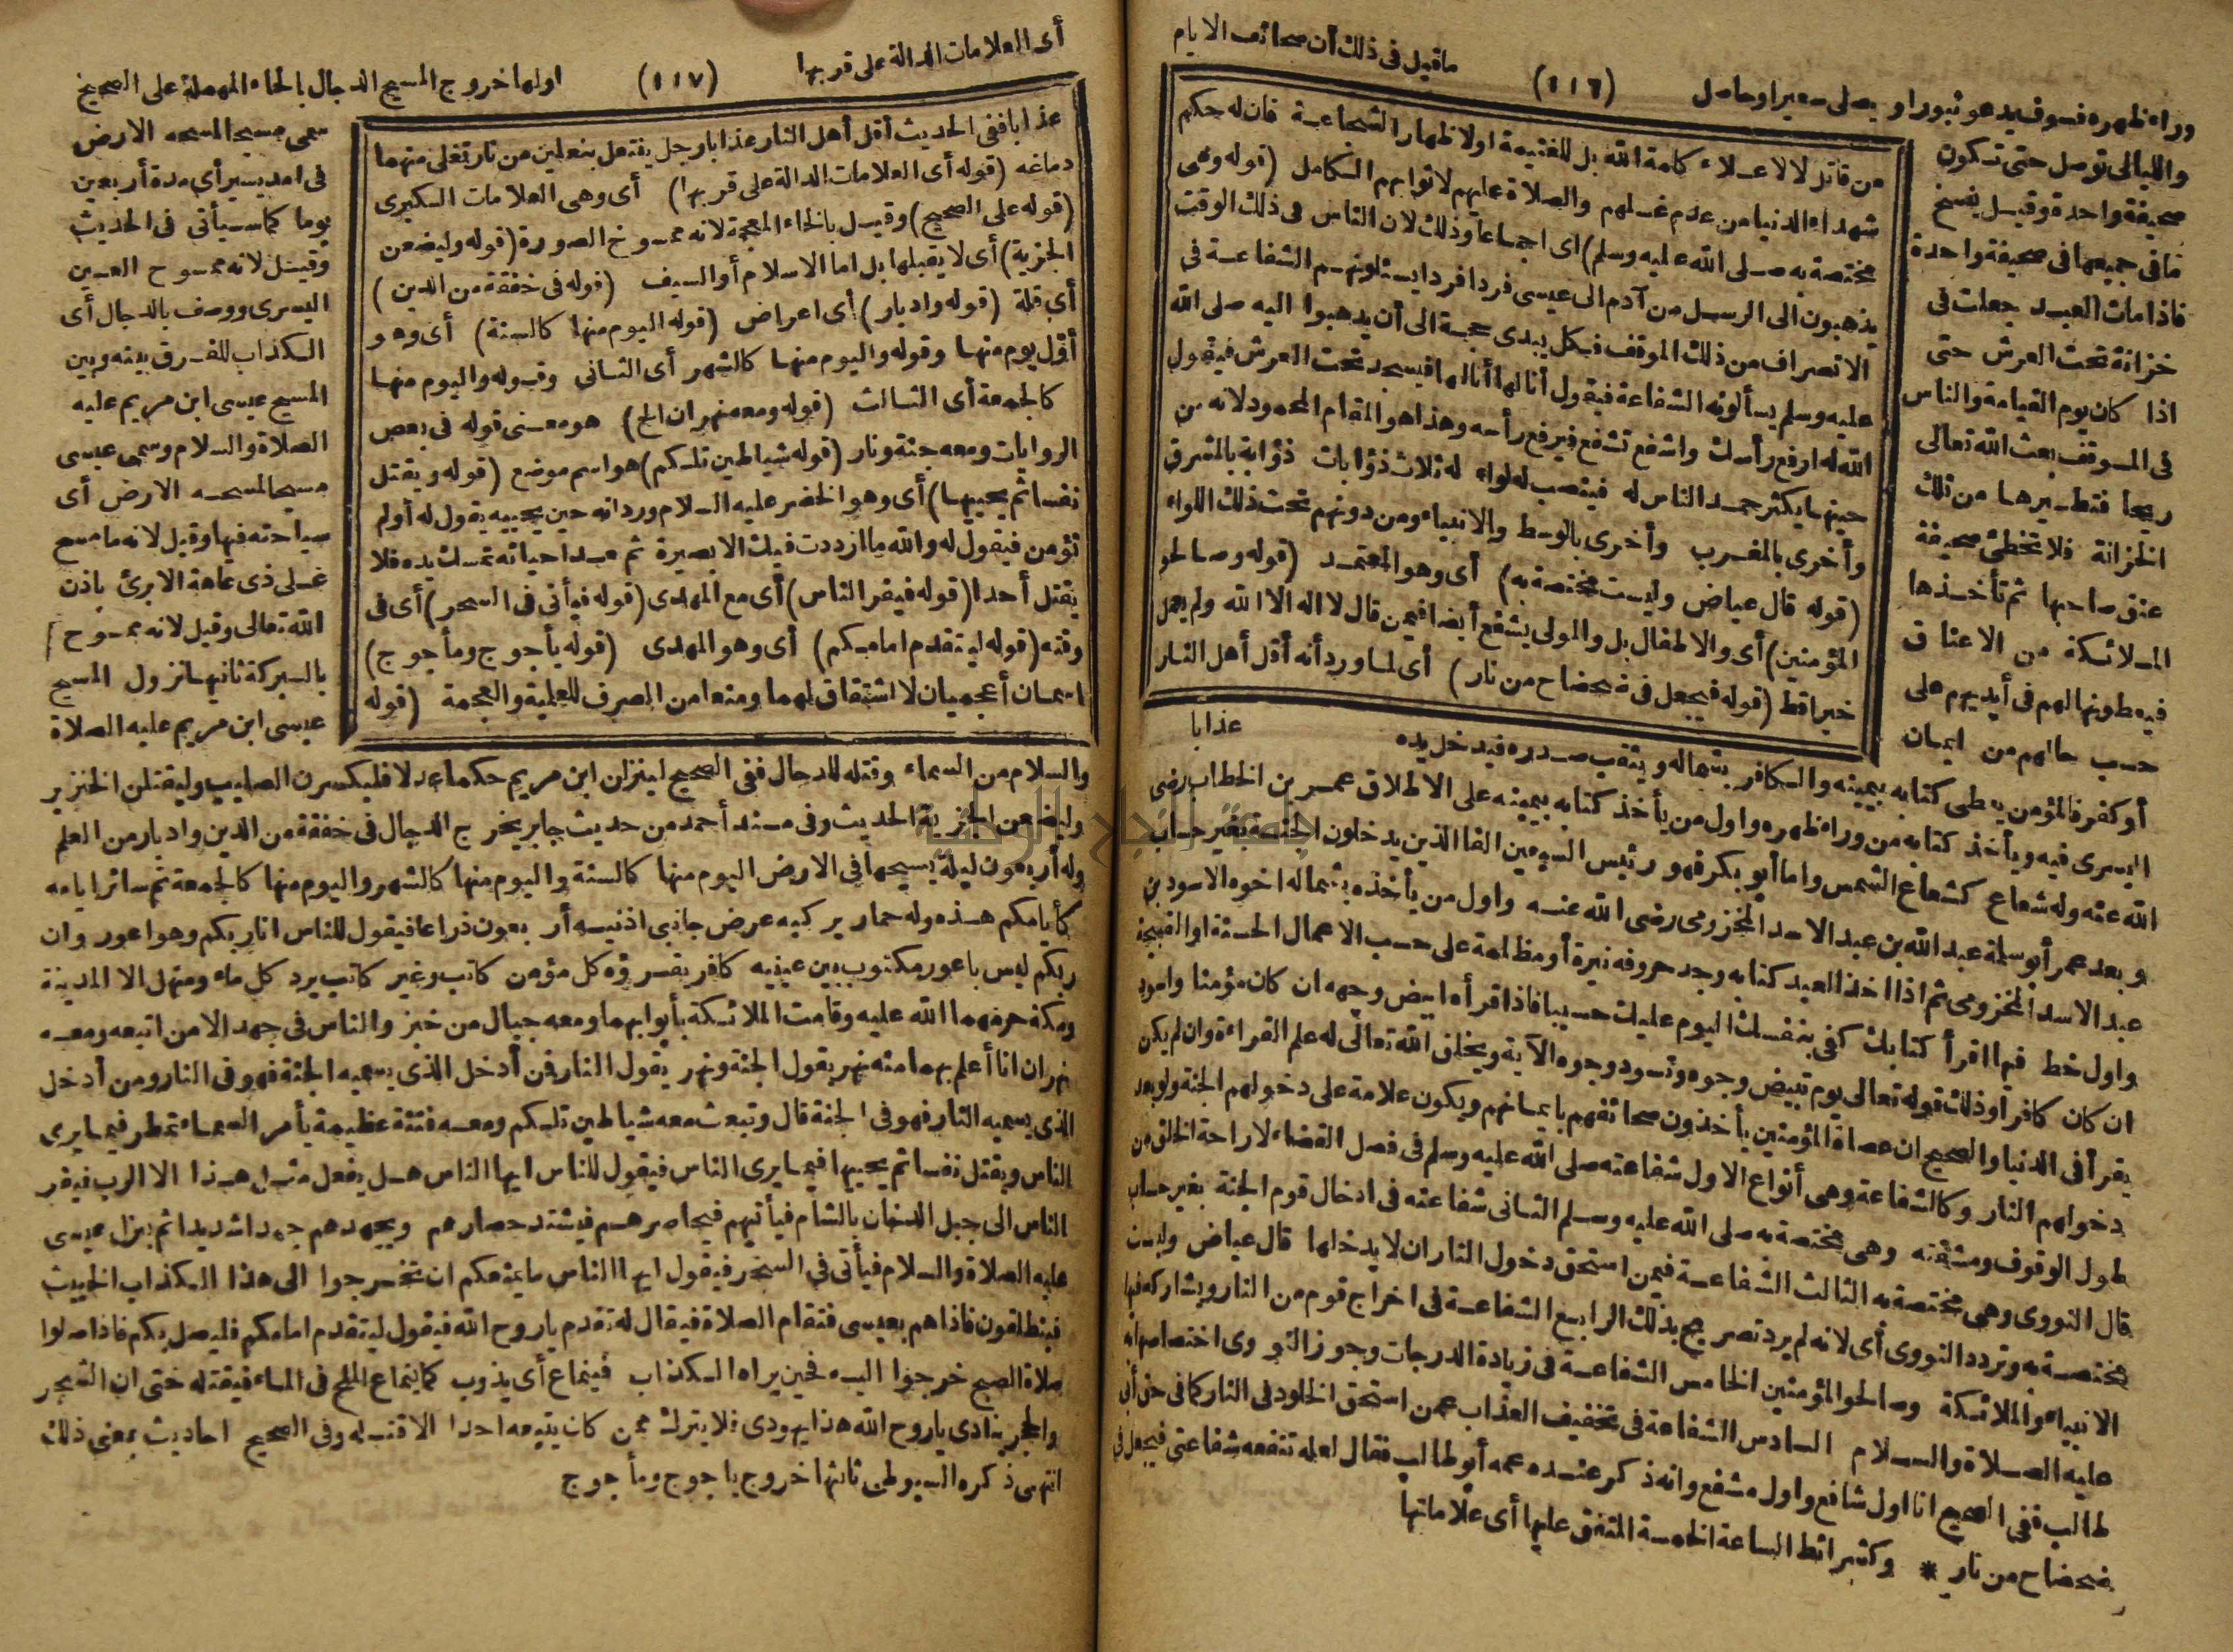 وراء ظهره فسوف يدعو ثبورا ويصلى سعيرا وحاصل (١١٦) ماقيل فى ذلك أن صحائف الايام
والليالى توصل حتى تكون
صحيفة واحدة وقيل ينسخ
مافى جميعها فى صحيفة واحدة
فاذا مات العبد جعلت فى
خزانة تحت العرش حتى
اذا كان يوم القيامة والناس
فى الموقف بعث الله تعالى
ريحا فتطيرها من تلك
الخزانة فلا تخطئ صحيفة
عنق صاحبها ثم تأخذها
الملائكة من الاعناق
فيعطونها لهم فى أيديهم على
حسب حالهم من ايمان
من قاتل لا لاعلاء كلمة الله بل للغنيمة اولاظهار الشجاعة فان له حكم
شهداء الدنيا من عدم غسلهم والصلاة عليهم لا ثوابهم الكامل (قوله وهى
مختصة به صلى الله عليه وسلم) اى اجماعا وذلك لان الناس فى ذلك الوقت
يذهبون الى الرسل من آدم الى عيسى فردا فردا يسئلونهم الشفاعة فى
الانصراف من ذلك الموقف فكل يبدى حجة الى أن يذهبوا اليه صلى الله
عليه وسلم يسألونه الشفاعة فيقول أنا لها أنا لها فيسجد تحت العرش فيقول
الله له ارفع رأسك واشفع تشفع فيرفع رأسه وهذا هو المقام المحمود لانه من
حينها يكثر حمد الناس له فينصب له لواء له ثلاث ذؤابات ذؤابة بالمشرق
وأخرى بالمغرب وأخرى بالوسط والانبياء ومن دونهم تحت ذلك اللواء
(قوله قال عياض وليست مختصة به) أى وهو المعتمد (قوله وصالحو
المؤمنين) أى والاطفال بل والمولى يشفع أيضا فيمن قال لا اله الا الله ولم يعمل
خيرا قط (قوله فيجعل فى ضحضاح من نار) أى لما ورد أنه أقل أهل النار
عذابا
أو كفر فالمؤمن يعطى كتابه بيمينه والكافر بشماله ويثقب صدره فيدخل يده
اليسرى فيه ويأخذ كتابه من وراء ظهره واول من يأخذ كتابه بيمينه على الاطلاق عمر بن الخطاب رضى
الله عنه وله شعاع كشعاع الشمس واما أبو بكر فهو رئيس السبعين الفا الذين يدخلون الجنة بغير حساب
وبعد عمر أبو سلمة عبد الله بن عبد الاسد المخزومى رضى الله عنه واول من يأخذه بشماله اخوه الاسود بن
عبد الاسد المخزومى ثم اذا اخذ العبد كتابه وجد حروفه نيرة أو مظلمة على حسب الاعمال الحسنة او القبيحة
واول خط فيها اقرأ كتابك كفى بنفسك اليوم عليك حسيبا فاذا قرأه ابيض وجهه ان كان مؤمنا واسود
ان كان كافرا وذلك قوله تعالى يوم تبيض وجوه وتسود وجوه الآية ويخلق الله تعالى له علم القراءة وان لم يكن
يقرأ فى الدنيا والصحيح ان عصاة المؤمنين يأخذون صحائفهم بايمانهم ويكون علامة على دخولهم الجنة ولو بعد
دخولهم النار وكالشفاعة وهى أنواع الاول شفاعته صلى الله عليه وسلم فى فصل القضاء لاراحة الخلق من
طول الوقوف ومشقته وهى مختصة به صلى الله عليه وسلم الثانى شفاعته فى ادخال قوم الجنة بغير حساب
قال النووى وهى مختصة به الثالث الشفاعة فيمن استحق دخول النار ان لا يدخلها قال عياض وليست
مختصة به وتردد النووى أى لانه لم يرد تصريح بذلك الرابع الشفاعة فى اخراج قوم من النار ويشاركه فيها
الانبياء والملائكة وصالحو المؤمنين الخامس الشفاعة فى زيادة الدرجات وجوز النووى اختصاصها به
عليه الصلاة والسلام السادس الشفاعة فى تخفيف العذاب عمن استحق الخلود فى النار كما فى حق أبى
طالب ففى الصحيح انا اول شافع واول مشفع وانه ذكر عنده عمه أبو طالب فقال لعله تنفعه شفاعتى فيجعل فى
ضحضاح من نار * وكشرائط الساعة الخمسة المتفق عليها أى علاماتها
أى العلامات الدالة على قربها (١١٧) اولها خروج المسيح الدجال بالحاء المهملة على الصحيح
سمى مسيحا لمسحه الارض
فى امد يسير أى مدة أربعين
يوما كما سيأتى فى الحديث
وقيل لانه ممسوح العين
اليسرى ووصف بالدجال أى
الكذاب للفرق بينه وبين
المسيح عيسى ابن مريم عليه
الصلاة والسلام وسمى عيسى
مسيحا لمسحه الارض أى
سياحته فيها وقيل لانه ما مسح
على ذى عاهة الا برئ باذن
الله تعالى وقيل لانه ممسوح
بالبركة ثانيها نزول المسيح
عيسى ابن مريم عليه الصلاة
عذابا ففى الحديث أقل أهل النار عذابا رجل ينتعل بنعلين من نار تغلى منهما
دماغه (قوله أى العلامات الدالة على قربها) أى وهى العلامات الكبرى
(قوله على الصحيح) وقيل بالخاء المعجمة لانه ممسوخ الصورة (قوله وليضعن
الجزية) أى لا يقبلها بل اما الاسلام أو السيف (قوله فى خفقة من الدين)
أى قلة (قوله وادبار) أى اعراض (قوله اليوم منها كالسنة) أى وهو
أوّل يوم منها وقوله واليوم منها كالشهر أى الثانى وقوله واليوم منها
كالجمعة أى الثالث (قوله ومعه نهران الخ) هو معنى قوله فى بعض
الروايات ومعه جنة ونار (قوله شياطين تلكم) هو اسم موضع (قوله ويقتل
نفسا ثم يحييها) أى وهو الخضر عليه السلام ورد انه حين يحييه يقول له أولم
تؤمن فيقول له والله ما ازددت فيك الا بصيرة ثم بعد احيائه تمسك يده فلا
يقتل أحدا (قوله فيفر الناس) أى مع المهدى (قوله فيأتى فى السحر) أى فى
وقته (قوله ليتقدم امامكم) أى وهو المهدى (قوله يأجوج ومأجوج)
اسمان أعجميان لا اشتقاق لهما ومنعا من الصرف للعلمية والعجمة (قوله
والسلام من السماء وقتله للدجال ففى الصحيح لينزلن ابن مريم حكما عدلا فليكسرن الصليب وليقتلن الخنزير
وليضعن الجزية الحديث وفى مسند أحمد من حديث جابر يخرج الدجال فى خفقة من الدين وادبار من العلم
وله أربعون ليلة يسيحها فى الارض اليوم منها كالسنة واليوم منها كالشهر واليوم منها كالجمعة ثم سائر ايامه
كأيامكم هذه وله حمار يركبه عرض ما بين اذنيه أربعون ذراعا فيقول للناس انا ربكم وهو اعور وان
ربكم ليس باعور مكتوب بين عينيه كافر يقرؤه كل مؤمن كاتب وغير كاتب يرد كل ماء ومنهل الا المدينة
ومكة حرمهما الله عليه وقامت الملائكة بأبوابهما ومعه جبال من خبز والناس فى جهد الا من اتبعه ومعه
نهران انا أعلم بهما منه نهر يقول الجنة ونهر يقول النار فمن أدخل الذى يسميه الجنة فهو فى النار ومن أدخل
الذى يسميه النار فهو فى الجنة قال وتبعث معه شياطين تلكم ومعه فتنة عظيمة يأمر السماء تمطر فيما يرى
الناس ويقتل نفسا ثم يحييها فيما يرى الناس فيقول للناس ايها الناس هل يفعل مثل هذا الا الرب فيفر
الناس الى جبل الدخان بالشام فيأتيهم فيحاصرهم فيشتد حصارهم ويجهدهم جهدا شديدا ثم ينزل عيسى
عليه الصلاة والسلام فيأتى فى السحر فيقول ايها الناس ما يمنعكم ان تخرجوا الى هذا الكذاب الخبيث
فينطلقون فاذا هم بعيسى فتقام الصلاة فيقال له تقدم ياروح الله فيقول ليتقدم امامكم فليصل بكم فاذا صلوا
صلاة الصبح خرجوا اليه فحين يراه الكذاب فينماع أى يذوب كما ينماع الملح فى الماء فيقتله حتى ان الشجر
والحجر ينادى ياروح الله هذا يهودى فلا يترك ممن كان يتبعه احدا الا قتله وفى الصحيح احاديث بمعنى ذلك
انتهى ذكره السيوطى ثالثها خروج ياجوج وماجوج
جامعة النجاح الوطنية